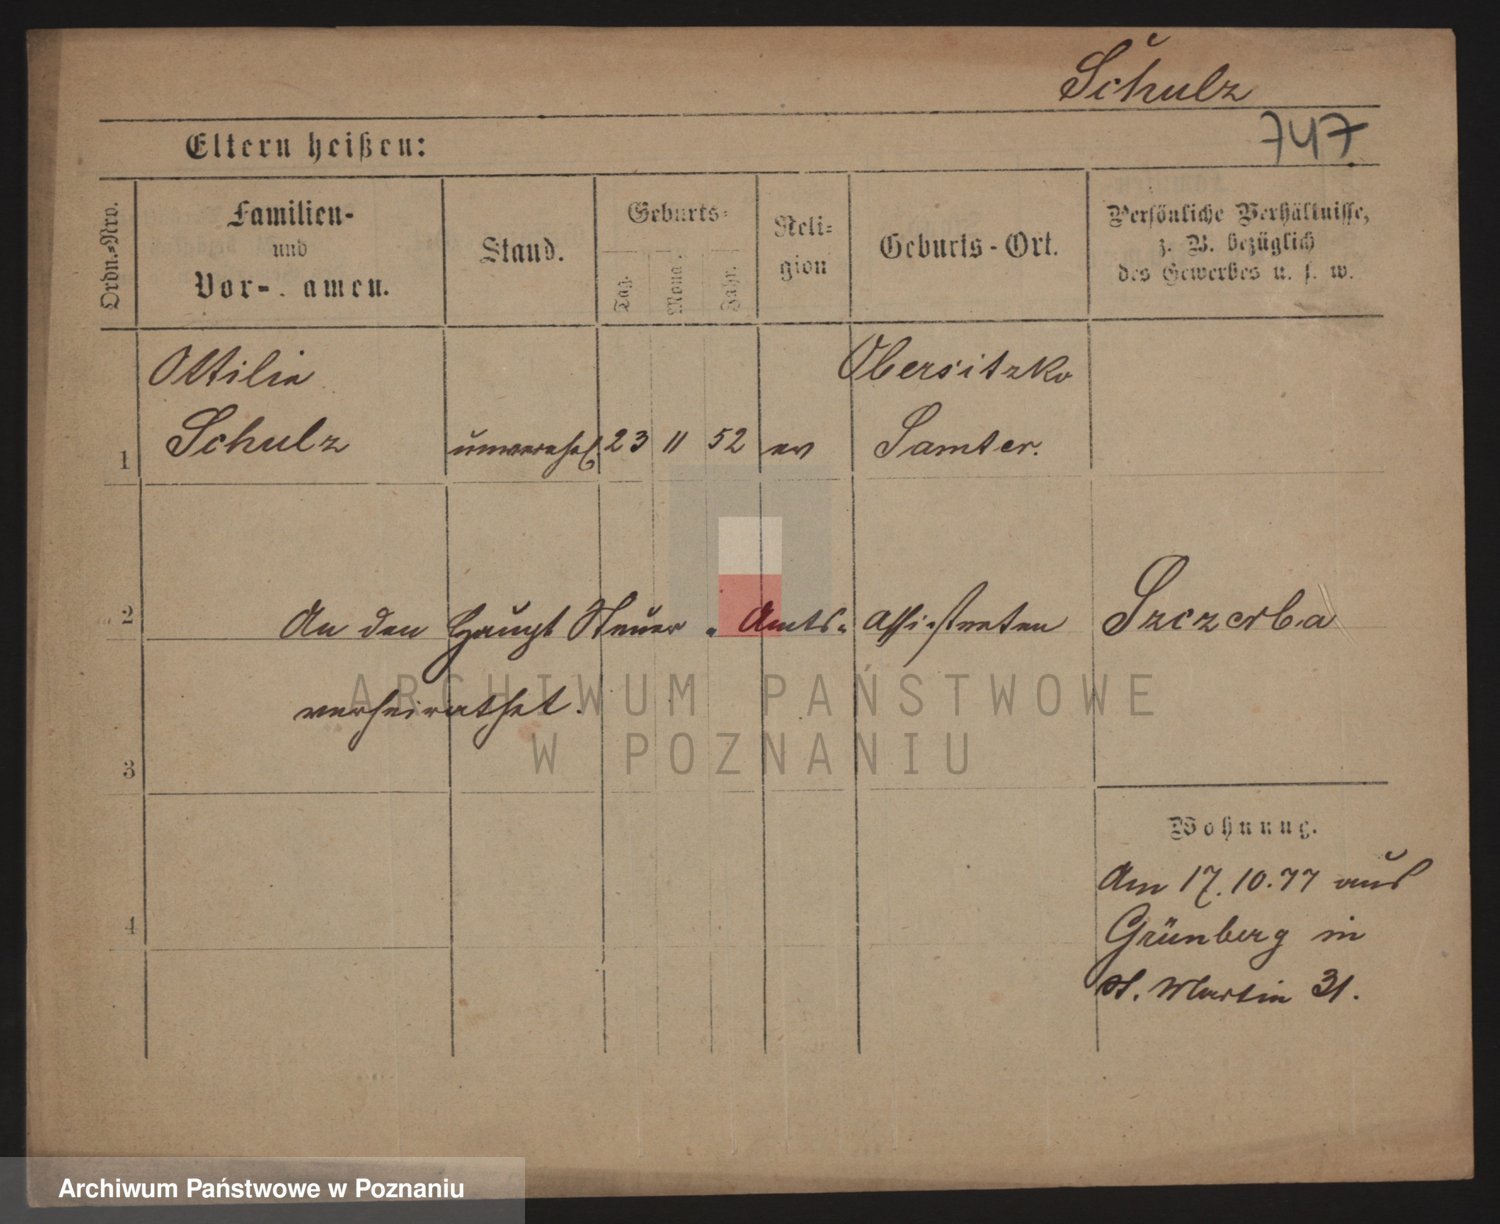 Schulz
747
Eltern heißen:
Ordn.-Nro.
Familien-
und
Vor- amen.
Stand.
Geburts-
Tag.
Mona .
Jahr.
Reli-
gion
Geburts-Ort.
Persönliche Verhältnisse,
z. B. bezüglich
des Gewerbes u. s. w.
Ottilie
Schulz
1
unverehel
23 11 52
ev
Obersitzko
Samter.
2
An den Haupt Steuer-Amts-Assistenten Szczerba
verheirathet.
3
Wohnung.
Am 17.10.77 aus
Grünberg in
St. Martin 31.
4
ARCHIWUM PAŃSTWOWE
W POZNANIU
Archiwum Państwowe w Poznaniu